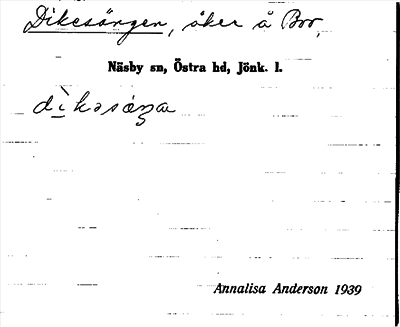 Dikesängen, åker å Boo,
Näsby sn, Östra hd, Jönk. l.
Annalisa Anderson 1939